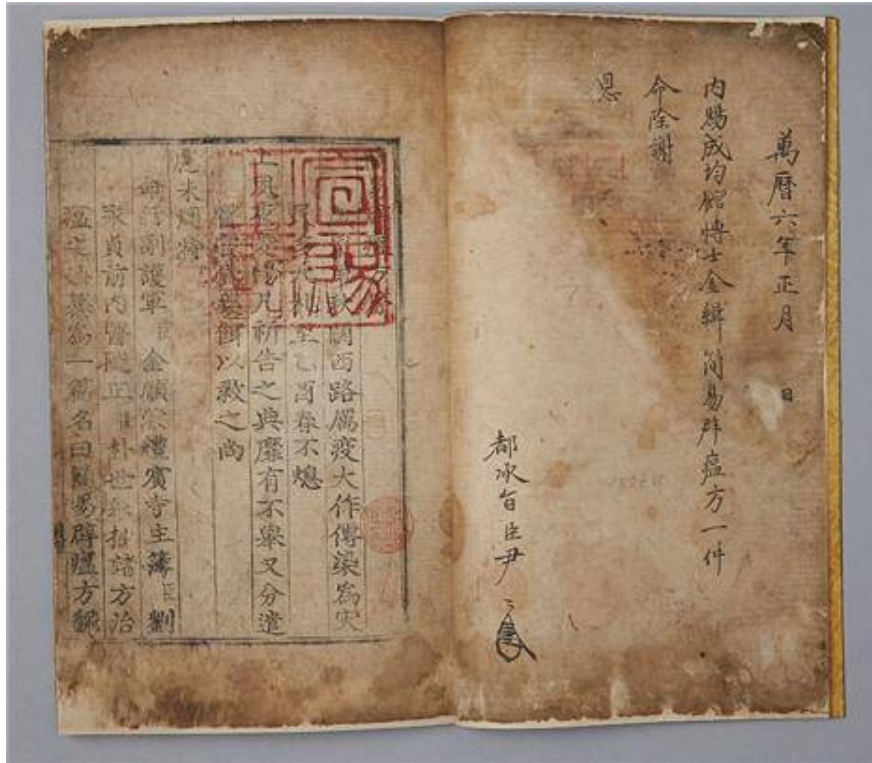 萬曆六年正月 日
内賜成均館博士金緝 簡易辟瘟方一件
命除謝
恩
都承旨臣尹
宣賜之記
秋關西路厲疫大作傳染爲灾
至乙酉春不熄
上夙夜憂惕凡祈告之典靡有不擧又分遣
藥餌以救之尚
慮未
命行副護軍臣金順蒙禮賓寺主簿臣劉
永貞前内醫院正臣朴世擧抄諸方治
瘟之法彙爲一篇名曰簡易辟瘟方飜